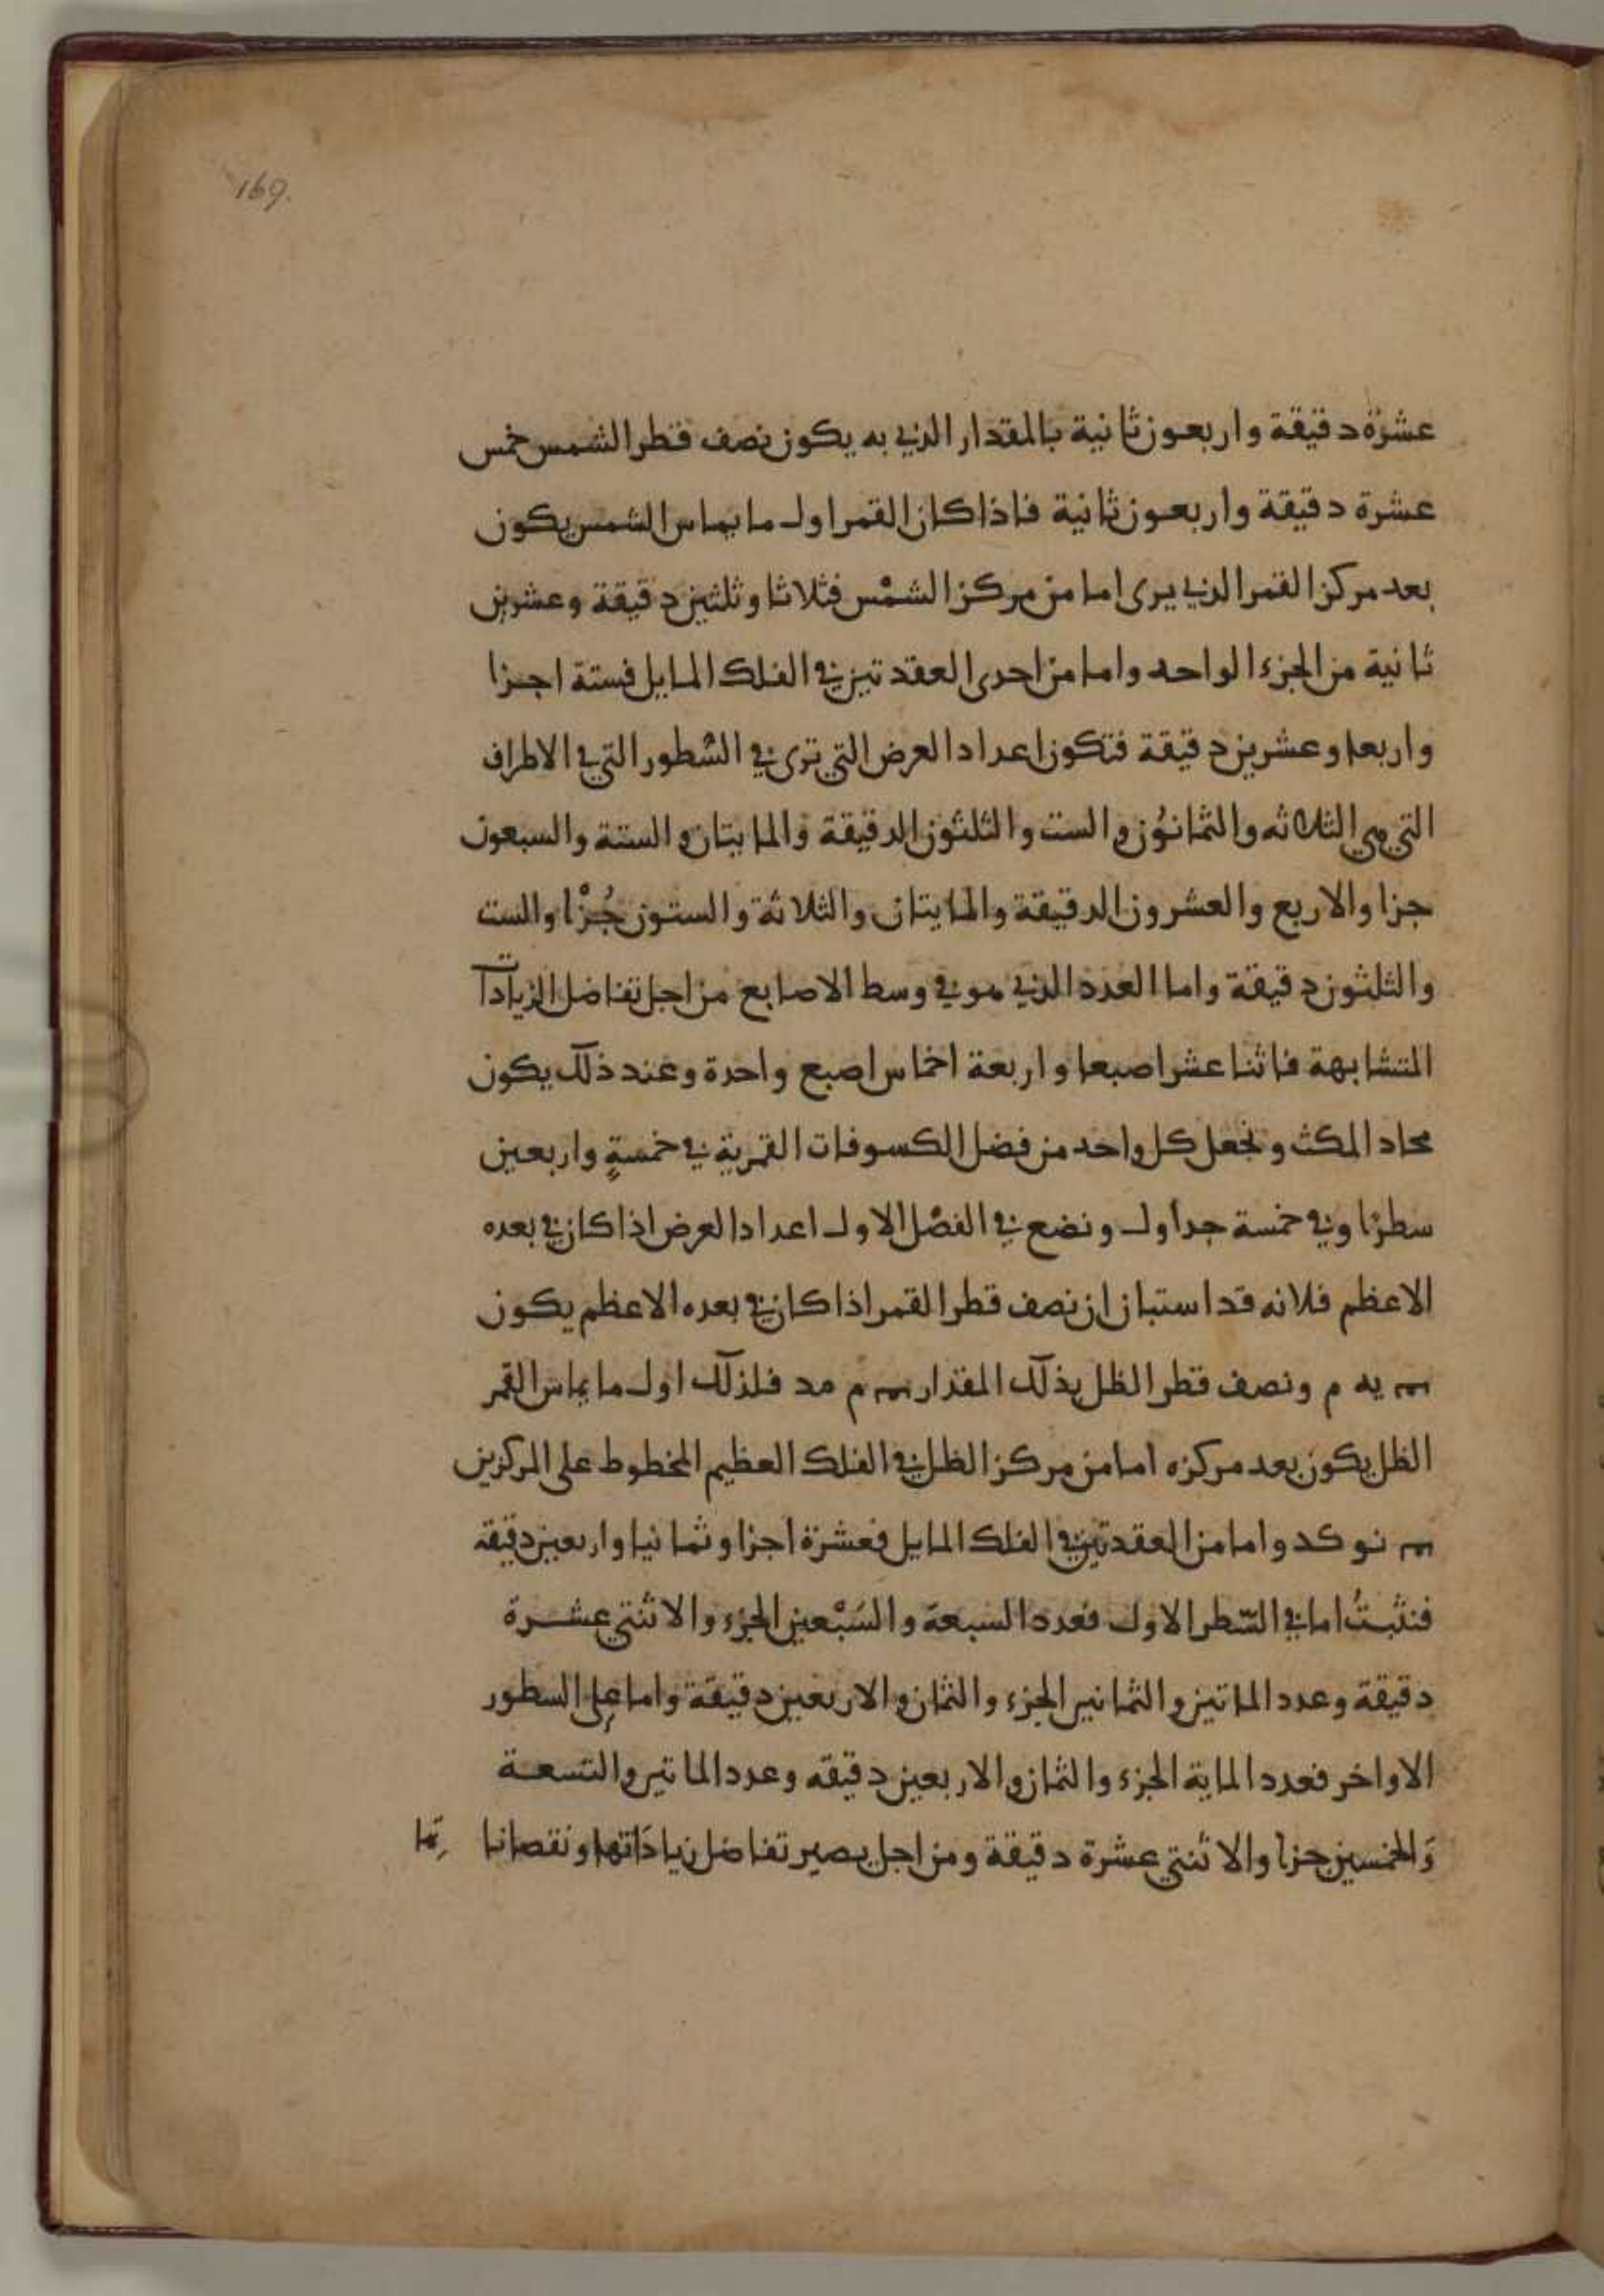 169.
عشرة دقيقة واربعون ثانية بالمقدار الذي به يكون نصف قطر الشمس خمس
عشرة دقيقة واربعون ثانية فاذا كان القمر اول ما يماس الشمس يكون
بعد مركز القمر الذي يرى اما من مركز الشمْس فثلاثا وثلثين دقيقة وعشرين
ثانية من الجزء الواحد واما من احدى العقدتين في الفلك المايل فستة اجزا
واربعا وعشرين دقيقة فتكون اعداد العرض التي ترى في السُطور التي في الاطراف
التي هي الثلاثه والثمانوُن والست والثلثون الدقيقة والمايتان والستة والسبعون
جزا والاربع والعشرون الدقيقة والمايتان والثلاثة والستون جُزْا والست
والثلثون دقيقة واما العدد الذي هو في وسط الاصابع من اجل تفاضل الزيادات
المتشابهة فاثنا عشر اصبعا واربعة اخماس اصبع واحدة وعند ذلك يكون
محاد المكث ونجعل كل واحد من فضل الكسوفات القمرية في خمسةٍ واربعين
سطرًا وفي خمسة جداول ونضع في الفصْل الاول اعداد العرض اذا كان في بعده
الاعظم فلانه قد استبان ان نصف قطر القمر اذا كان في بعده الاعظم يكون
يه م ونصف قطر الظل بذلك المقدار م مد فلذلك اول ما يماس القمر
الظل يكون بعد مركزه اما من مركز الظل في الفلك العظيم المخطوط على المركزين
نو كد واما من العقدتين في الفلك المايل فعشرة اجزا وثمانيا واربعين دقيقه
فنثبتُ اما في السّطر الاول فعدد السبعة والسَبْعين الجزء والاثنتي عشرة
دقيقة وعدد الماتين والثمانين الجزء والثمان والاربعين دقيقة واما على السطور
الاواخر فعدد الماية الجزء والثمان والاربعين دقيقه وعدد الماتين والتسعة
وَالخمسين جزا والاثنتي عشرة دقيقة ومن اجل يصير تفاضل زياداتها ونقصانا